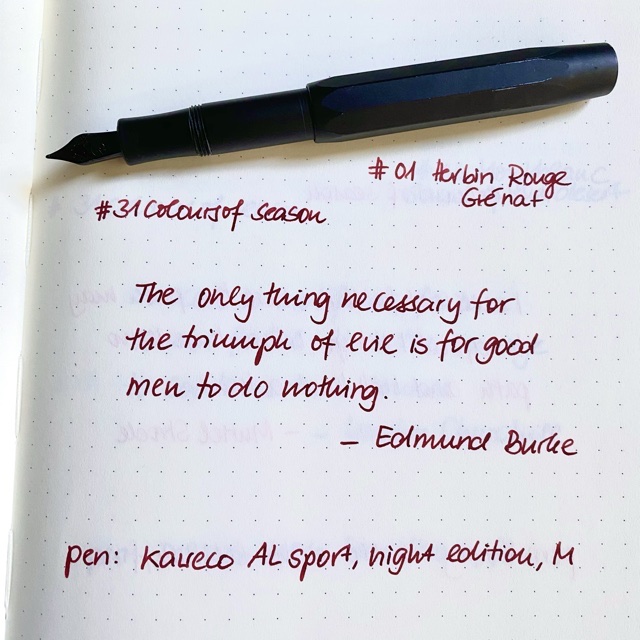 #01 Herbin Rouge
Grénat
#31 Colours of season
The only thing necessary for
the triumph of evil is for good
men to do nothing.
– Edmund Burke
pen: Kaweco AL sport, night edition, M